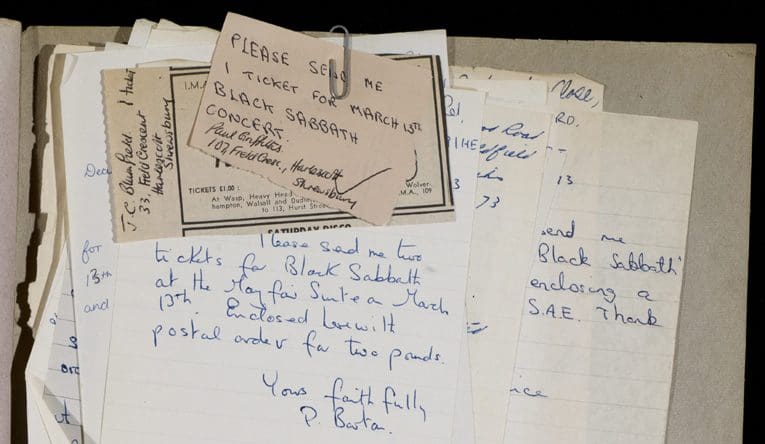 PLEASE SEND ME
1 TICKET FOR MARCH 13TH
BLACK SABBATH
CONCERT.
Paul Griffiths.
107, Field Cresc., Harlescott
Shrewsbury
J. C. Blumfield 1 ticket
33, Field Crescent
Harlescott
Shrewsbury
I.M.A
TICKETS £1.00:
At Wasp, Heavy Head
Wolver-
hampton, Walsall and Dudley
M.A., 109
to 113, Hurst Street
SATURDAY DISCO
Please send me two
tickets for Black Sabbath
at the Mayfair Suite on March
13th. Enclosed herewith
postal order for two pounds.
Yours faithfully
P. Barton.
Dear
for
13th
and
Close,
RD.
Road
73
13
send me
Black Sabbath'
enclosing a
S.A.E. Thank